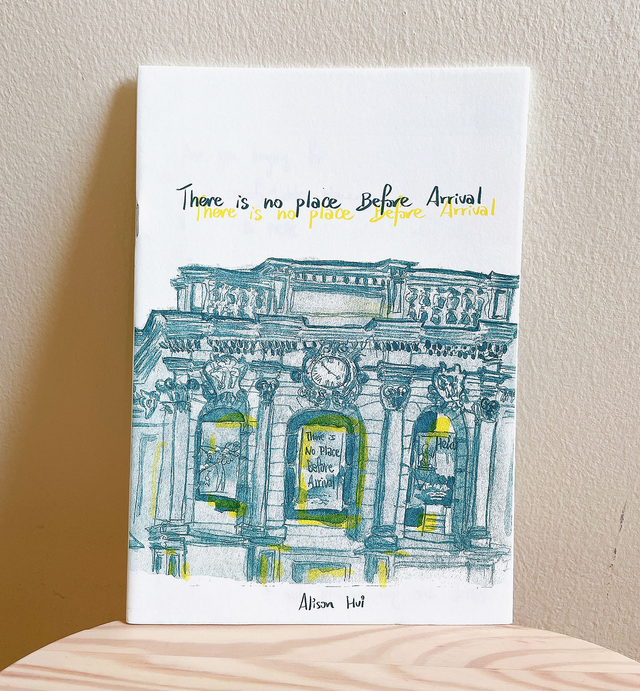 There is no place Before Arrival
There is no place Before Arrival
There is
No Place
Before
Arrival
Alison Hui